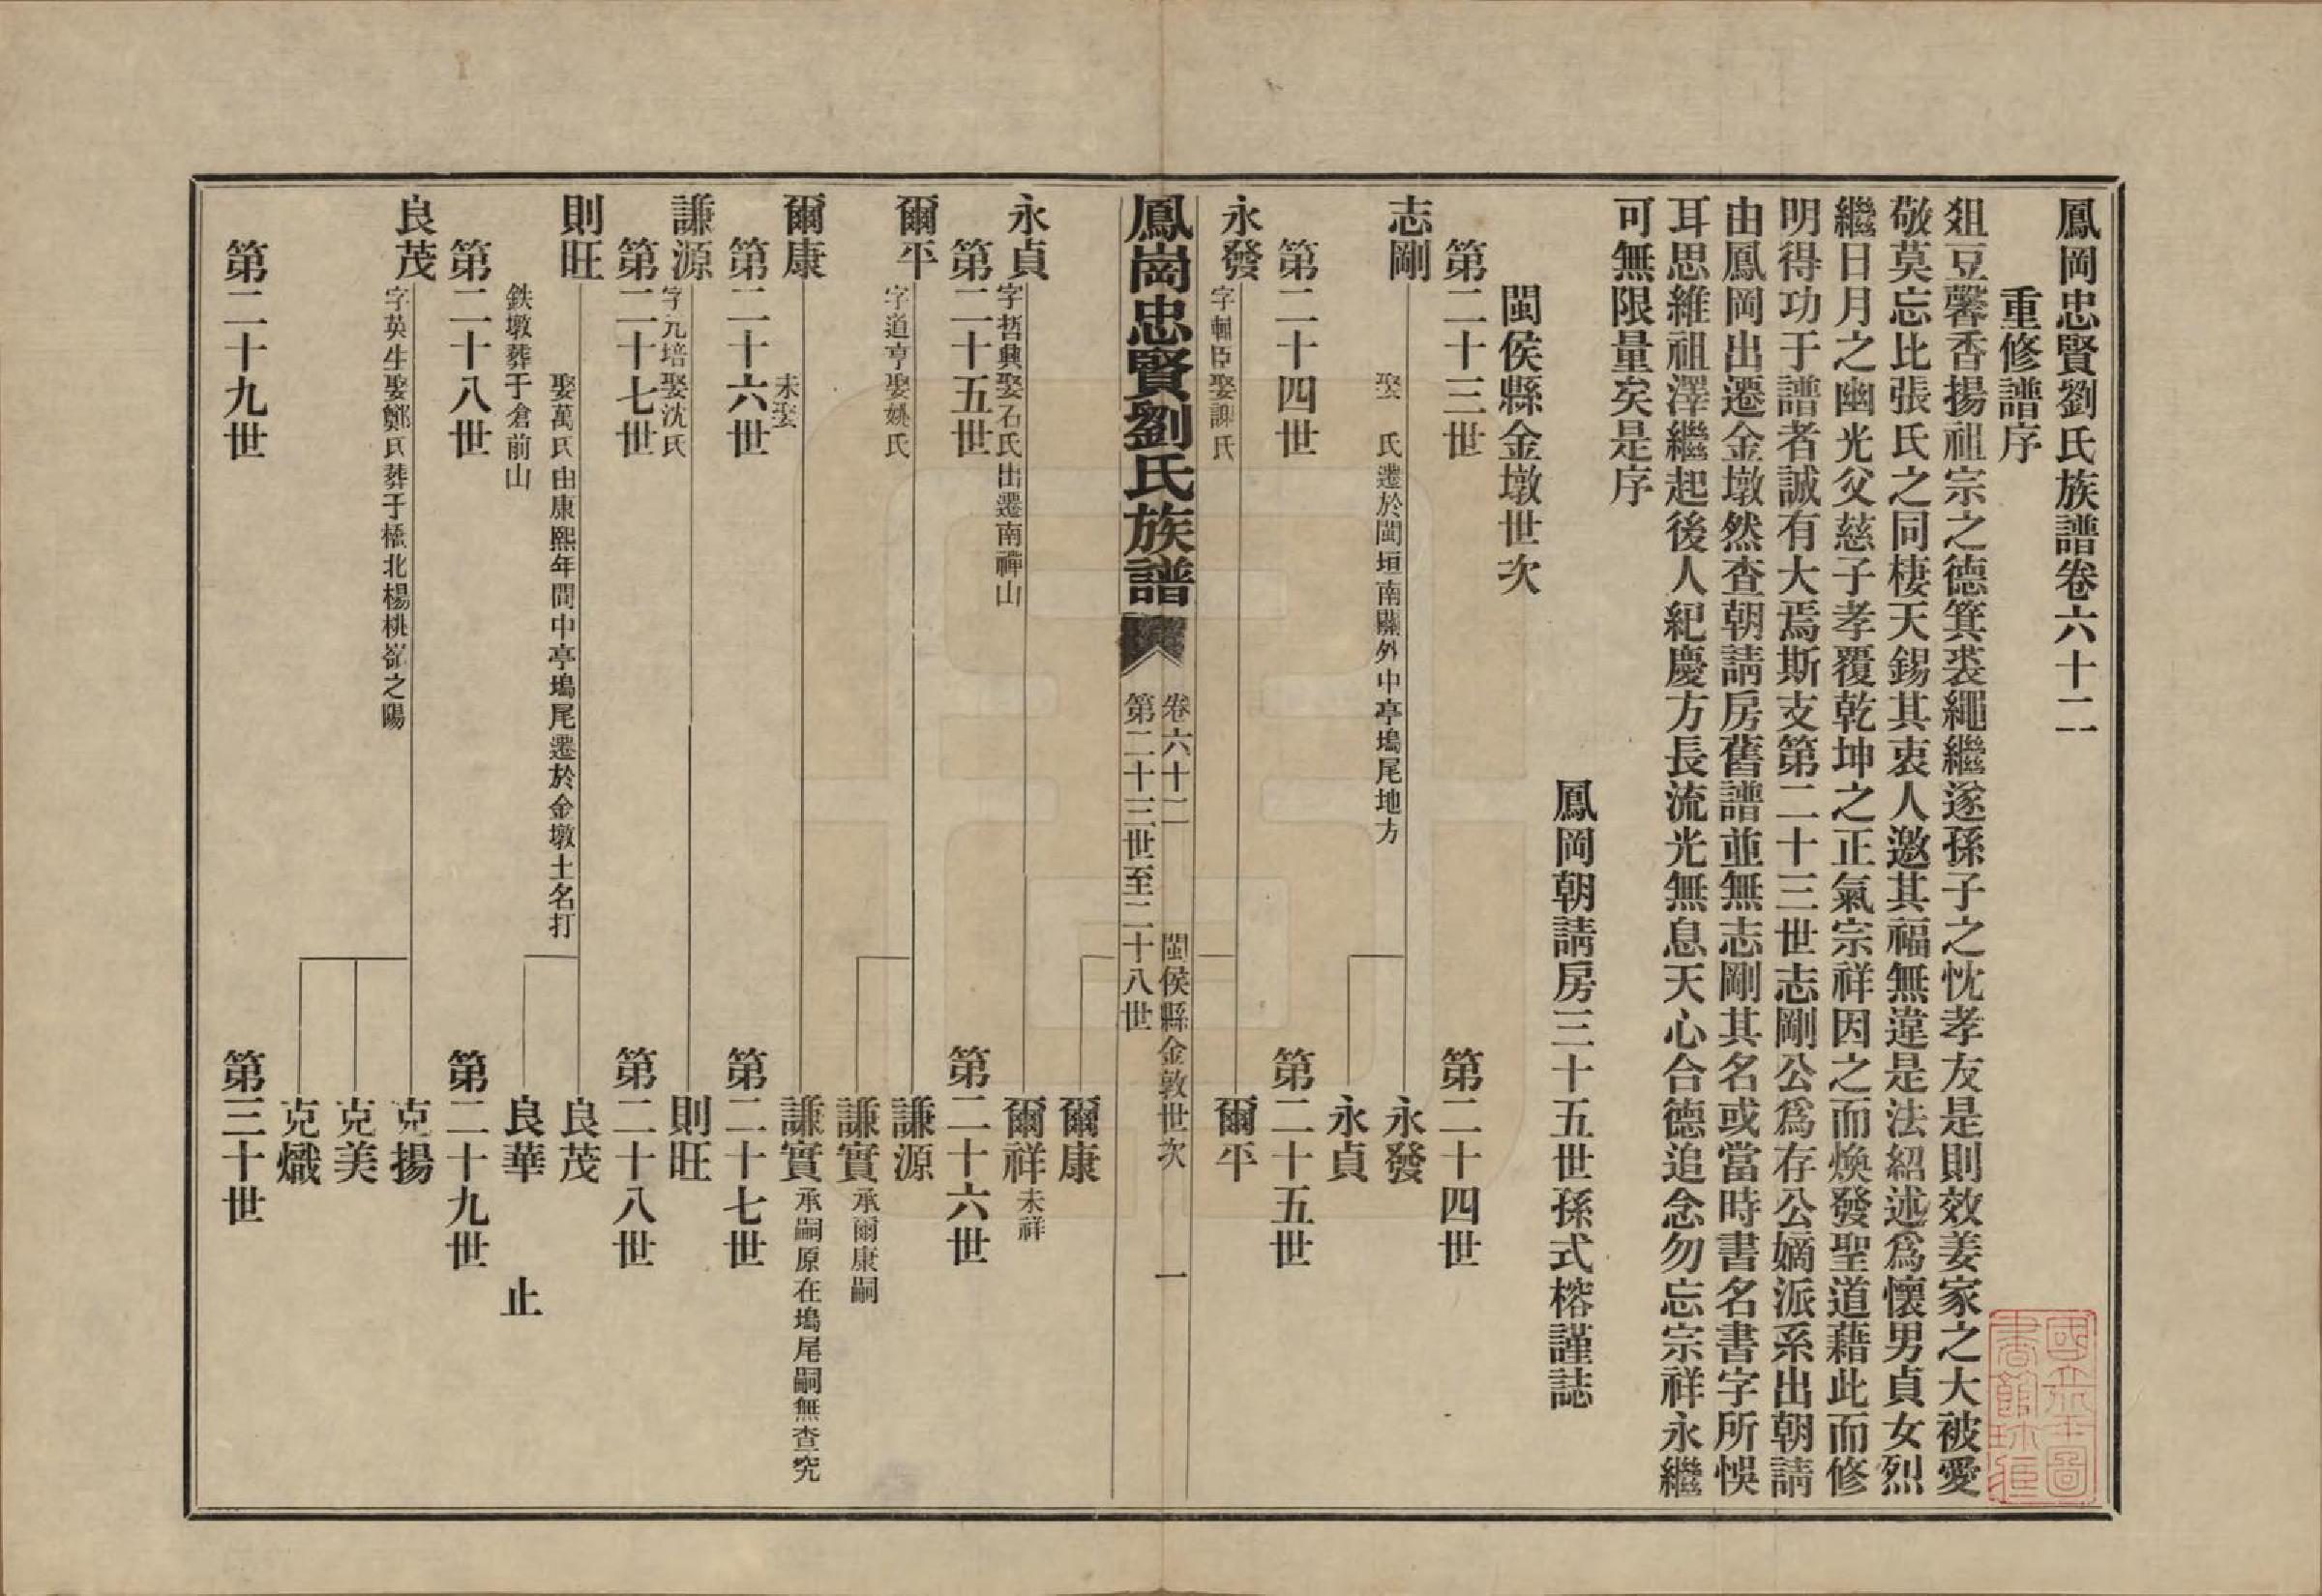 鳳岡忠賢劉氏族譜卷六十二
重修譜序
俎豆馨香揚祖宗之德箕裘繩繼遂孫子之忱孝友是則效姜家之大被愛
敬莫忘比張氏之同棲天錫其衷人邀其福無違是法紹述爲懷男貞女烈
繼日月之幽光父慈子孝覆乾坤之正氣宗祥因之而煥發聖道藉此而修
明得功于譜者誠有大焉斯支第二十三世志剛公爲存公嫡派系出朝請
由鳳岡出遷金墩然查朝請房舊譜並無志剛其名或當時書名書字所悞
耳思維祖澤繼起後人紀慶方長流光無息天心合德追念勿忘宗祥永繼
可無限量矣是序
鳳岡朝請房三十五世孫式榕謹誌
閩侯縣金墩世次
第二十三世
第二十四世
志剛
娶 氏遷於閩垣南關外中亭塢尾地方
永發
永貞
第二十四世
第二十五世
永發
字輔臣娶謝氏
爾平
鳳崗忠賢劉氏族譜
卷六十二
閩侯縣金敦世次
第二十三世至二十八世
一
爾康
永貞
字哲興娶石氏出遷南禪山
爾祥
未祥
第二十五世
第二十六世
爾平
字道亨娶姚氏
謙源
謙實
承爾康嗣
爾康
未娶
謙實
承嗣原在塢尾嗣無查究
第二十六世
第二十七世
謙源
字元培娶沈氏
則旺
第二十七世
第二十八世
則旺
娶萬氏由康熙年間中亭塢尾遷於金墩土名打
鉄墩葬于倉前山
良茂
良華
止
第二十八世
第二十九世
良茂
字英生娶鄭氏葬于橋北楊桃嶺之陽
克揚
克美
克熾
第二十九世
第三十世
國立北平圖
書館珍藏